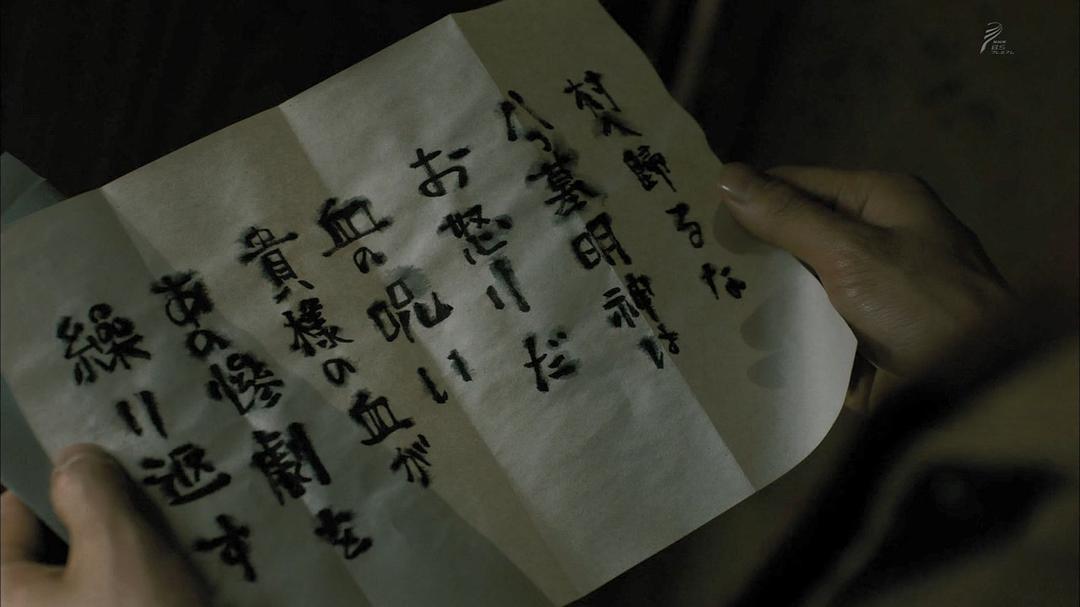 村へ歸るな
八つ墓明神は
お怒りだ
血の呪い
貴様の血が
あの惨劇を
繰り返す
NHK
BS
プレミアム